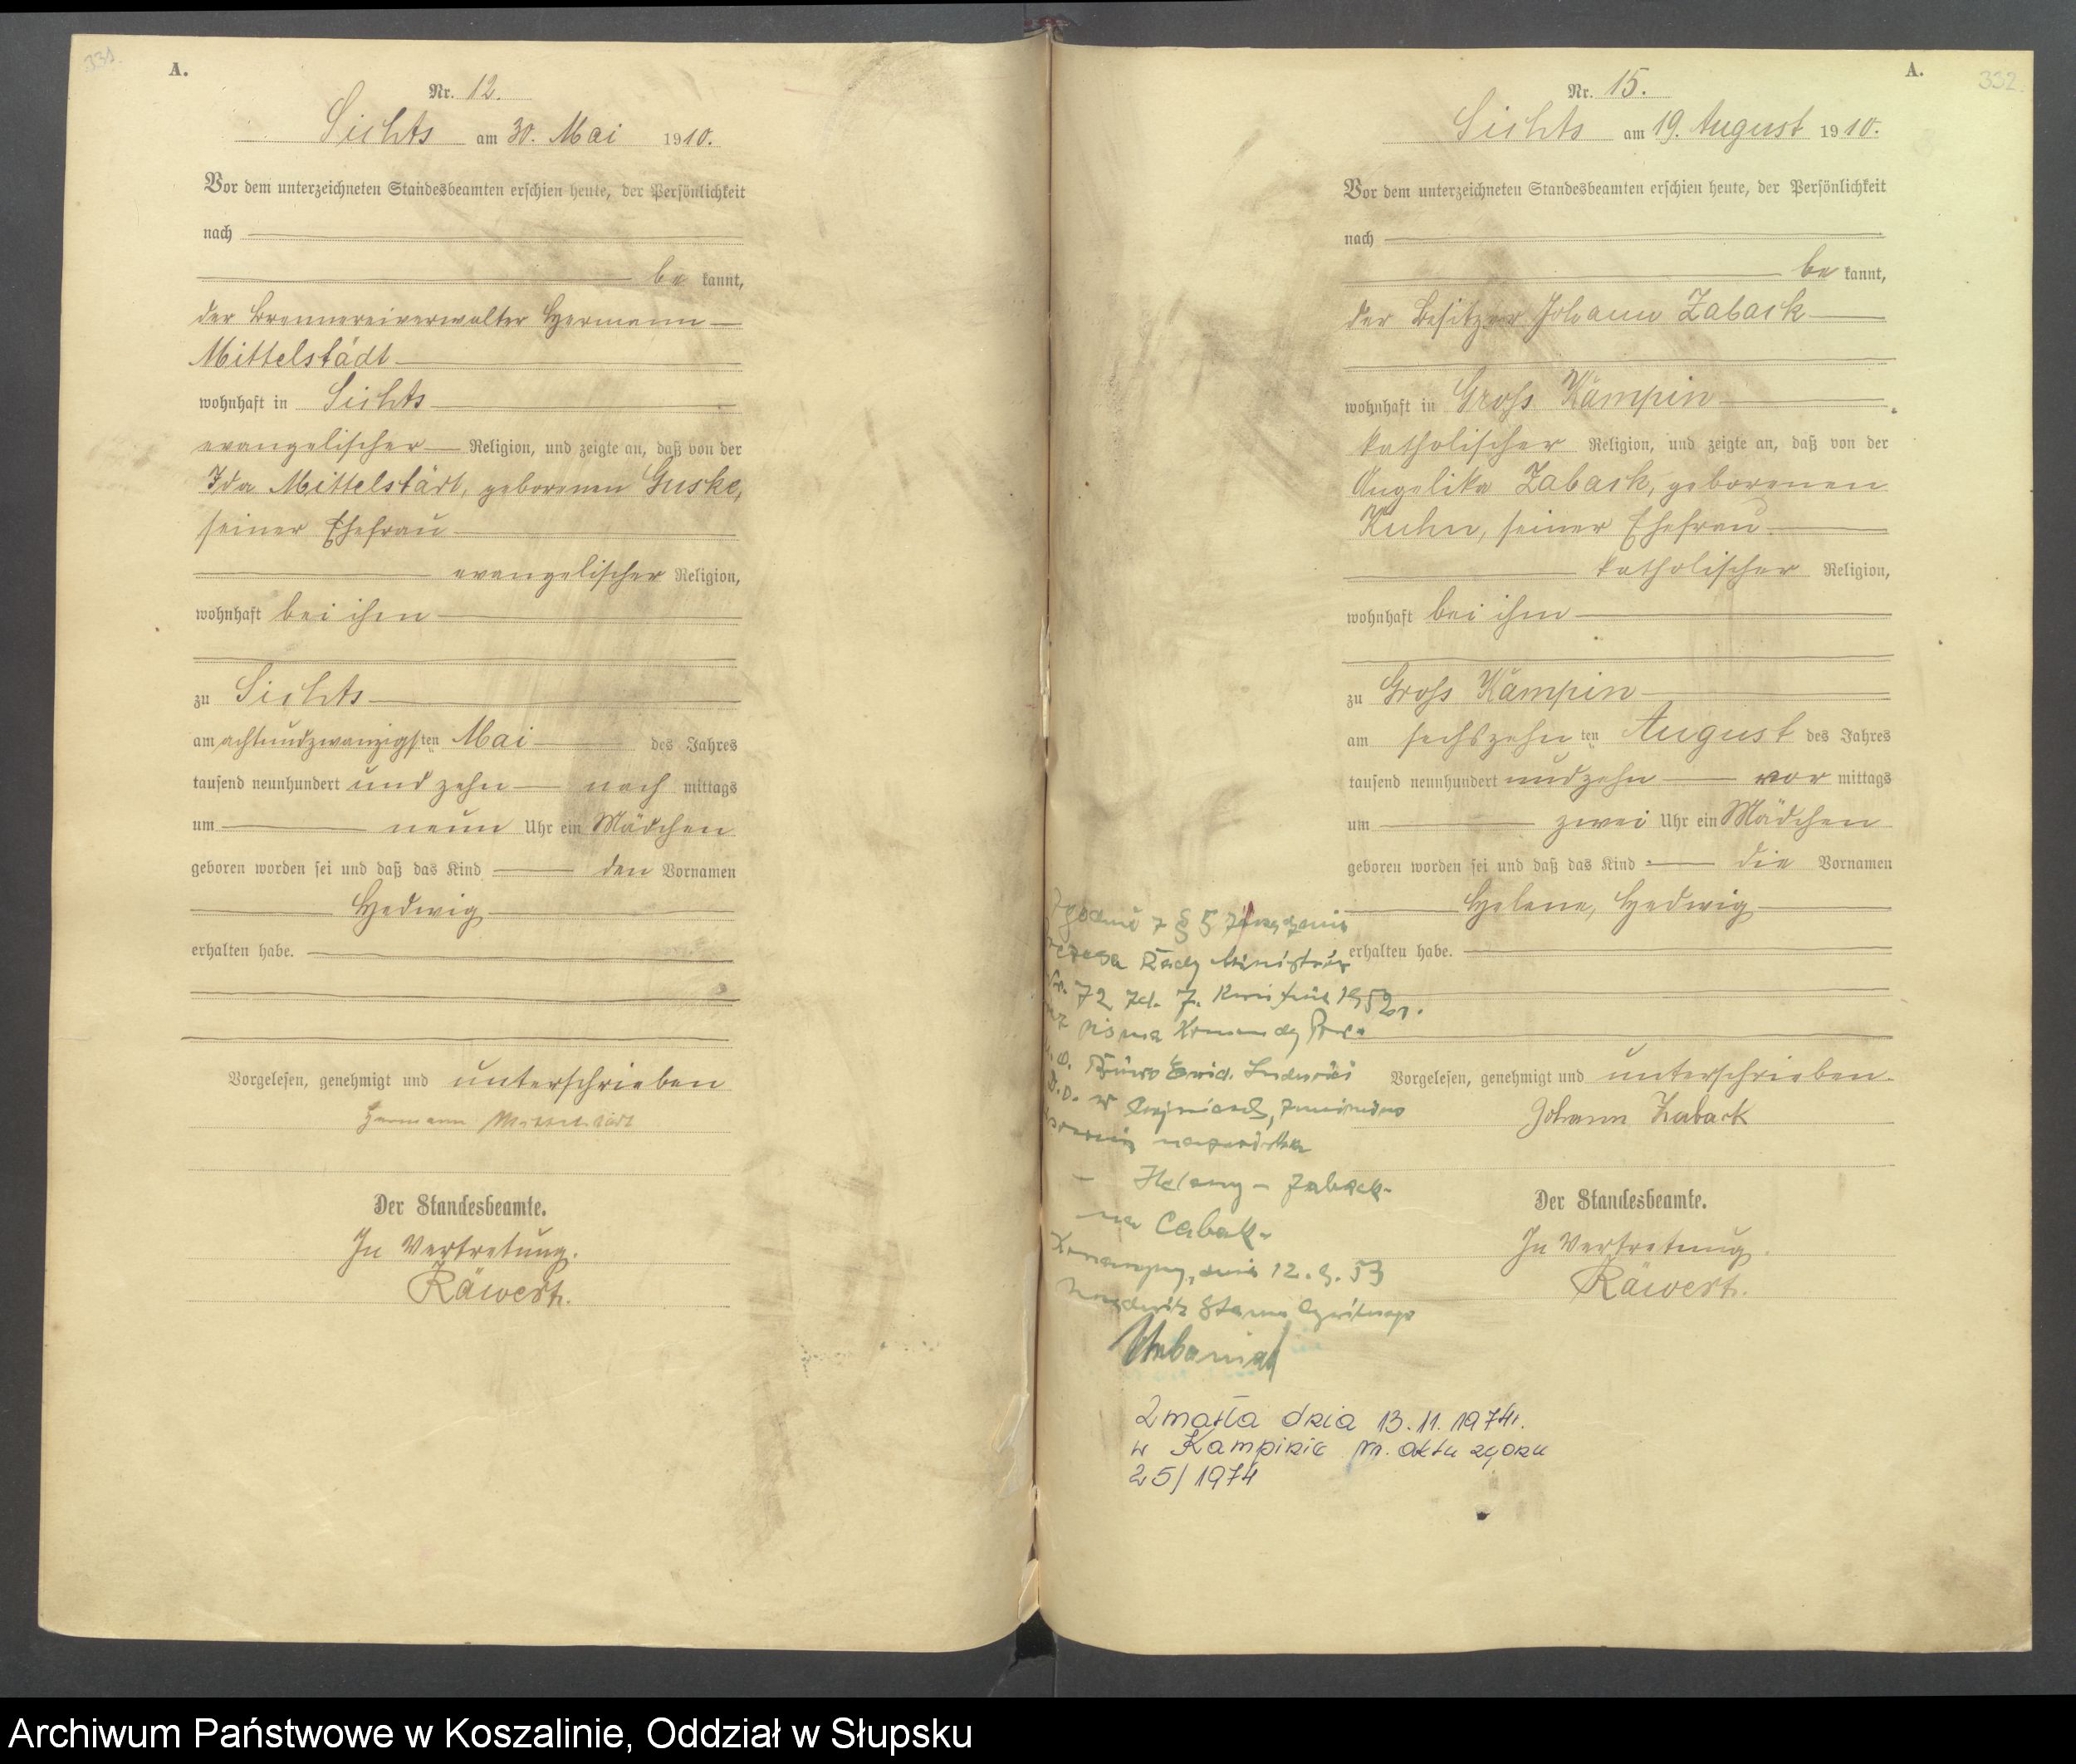 331.
A.
Nr. 12.
Sichts am 30. Mai 1910.
Vor dem unterzeichneten Standesbeamten erschien heute, der Persönlichkeit
nach
be kannt,
der Brennereiverwalter Hermann
Mittelstädt
wohnhaft in Sichts
evangelischer Religion, und zeigte an, daß von der
Ida Mittelstädt, geborenen Guske,
seiner Ehefrau
evangelischer Religion,
wohnhaft bei ihm
zu Sichts
am achtundzwanzigsten Mai des Jahres
tausend neunhundert und zehn nach mittags
um neun Uhr ein Mädchen
geboren worden sei und daß das Kind den Vornamen
Hedwig
erhalten habe.
Vorgelesen, genehmigt und unterschrieben
Hermann Mittelstädt
Der Standesbeamte.
In Vertretung.
Räwert.
A.
332.
Nr. 15.
Sichts am 19. August 1910.
Vor dem unterzeichneten Standesbeamten erschien heute, der Persönlichkeit
nach
be kannt,
der Besitzer Johann Zaback
wohnhaft in Gross Kämpin
katholischer Religion, und zeigte an, daß von der
Angelika Zaback, geborenen
Kuhn, seiner Ehefrau
katholischer Religion,
wohnhaft bei ihm
zu Gross Kämpin
am sechszehnten August des Jahres
tausend neunhundert und zehn vor mittags
um zwei Uhr ein Mädchen
geboren worden sei und daß das Kind die Vornamen
Helene, Hedwig
erhalten habe.
Vorgelesen, genehmigt und unterschrieben.
Johann Zaback
Der Standesbeamte.
In Vertretung.
Räwert.
z § 5
Rady Ministrów
72 zd. 7. 1952r.
pisma Komendy
w
nazwiska
- Heleny - Zaback-
na Cabak-
dnia 12. 9. 53
Urzędnik Stanu Cywilnego
Zmarła dnia 13.11.1974r.
w Kampinie nr. aktu zgonu
25/1974
Archiwum Państwowe w Koszalinie, Oddział w Słupsku